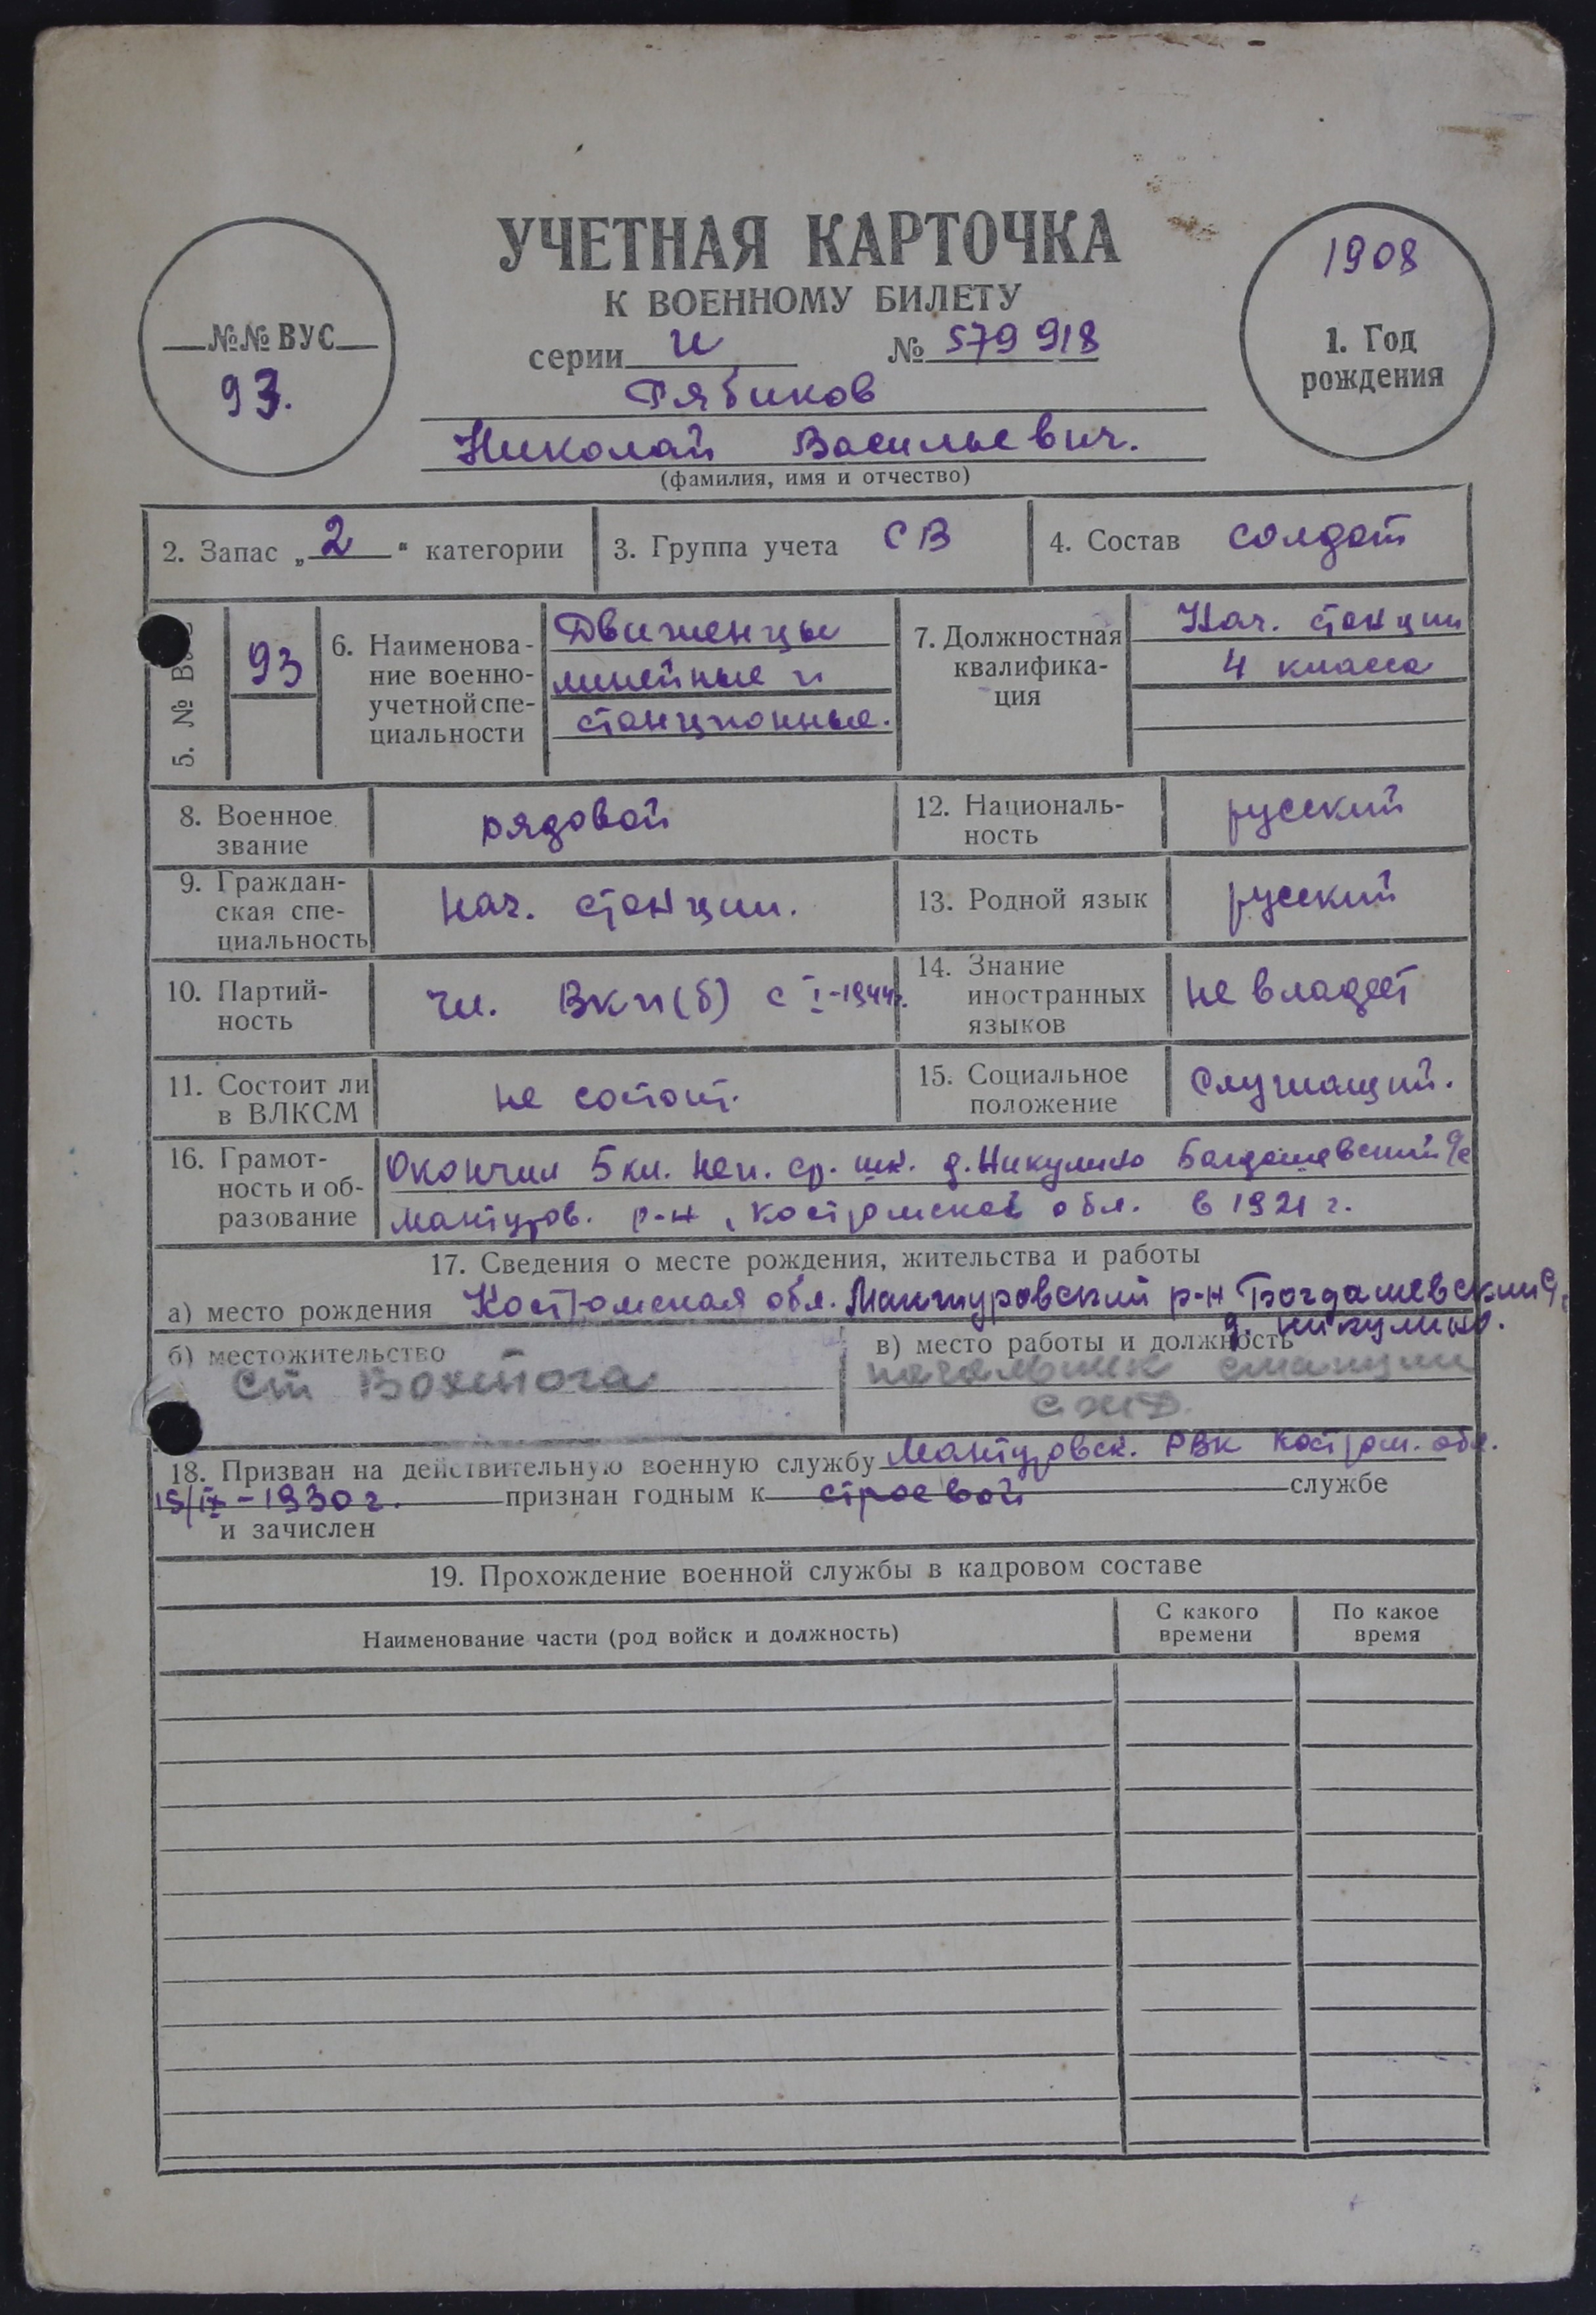 УЧЕТНАЯ КАРТОЧКА
К ВОЕННОМУ БИЛЕТУ
серии и № 579918
Рябиков
Николай Васильевич.
(фамилия, имя и отчество)
№№ ВУС
93.
1908
1. Год
рождения
2. Запас „2“ категории
3. Группа учета СВ
4. Состав солдат
5. № В
93
6. Наименова-
ние военно-
учетной спе-
циальности
Движенцы
линейные и
станционные.
7. Должностная
квалифика-
ция
Нач. станции
4 класса
8. Военное
звание
рядовой
12. Националь-
ность
русский
9. Граждан-
ская спе-
циальность
нач. станции.
13. Родной язык
русский
10. Партий-
ность
чл. ВКП(б) с I-1944г.
14. Знание
иностранных
языков
не владеет
11. Состоит ли
в ВЛКСМ
не состоит.
15. Социальное
положение
Служащий.
16. Грамот-
ность и об-
разование
Окончил 5 кл. неп. ср. шк. д. Никулино Богдашевский с/с
Мантуров. р-н, Костромской обл. в 1921 г.
17. Сведения о месте рождения, жительства и работы
а) место рождения Костромская обл. Мантуровский р-н Богдашевский
д. Никулино.
б) местожительство
ст Вохтога
в) место работы и должность
начальник станции
СЖД.
18. Призван на действительную военную службу Мантуровск. РВК Костром. обл.
15/IX-1930 г. признан годным к строевой службе
и зачислен
19. Прохождение военной службы в кадровом составе
Наименование части (род войск и должность)
С какого
времени
По какое
время